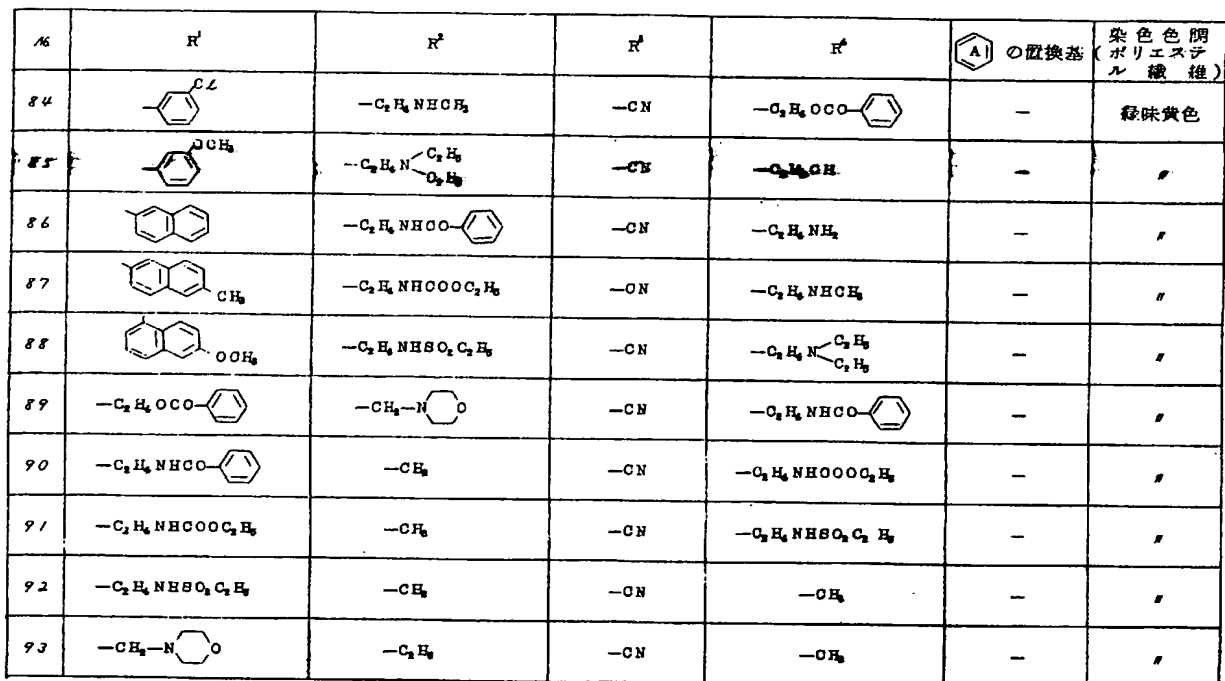 № R¹ R² R³ R⁴ A の置換基 染色色調(ポリエステル繊維)
84 Cl —C₂H₄NHCH₃ —CN —C₂H₄OCO— — 緑味黄色
85 OCH₃ —C₂H₄N C₂H₅ C₂H₅ —CN — 〃
86 —C₂H₄NHCO— —CN —C₂H₄NH₂ — 〃
87 CH₃ —C₂H₄NHCOOC₂H₅ —CN —C₂H₄NHCH₃ — 〃
88 OCH₃ —C₂H₄NHSO₂C₂H₅ —CN —C₂H₄N C₂H₅ C₂H₅ — 〃
89 —C₂H₄OCO— —CH₂—N O —CN —C₂H₄NHCO— — 〃
90 —C₂H₄NHCO— —CH₃ —CN —C₂H₄NHCOOC₂H₅ — 〃
91 —C₂H₄NHCOOC₂H₅ —CH₃ —CN —C₂H₄NHSO₂C₂H₅ — 〃
92 —C₂H₄NHSO₂C₂H₅ —CH₃ —CN —CH₃ — 〃
93 —CH₂—N O —C₂H₅ —CN —CH₃ — 〃